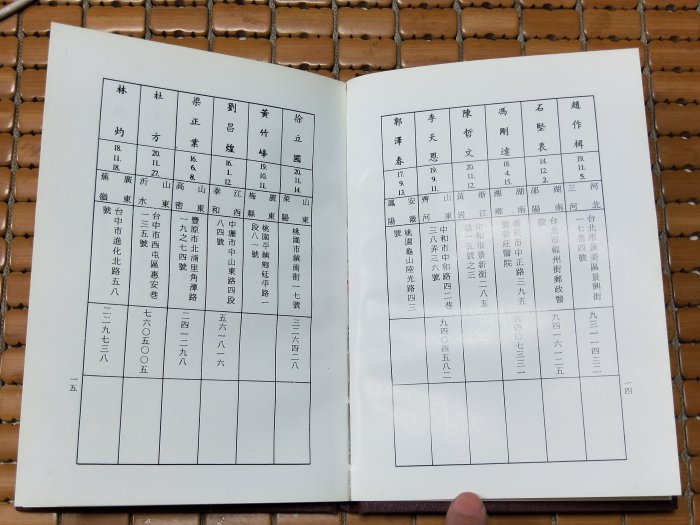 趙作楫 19. 11. 5. 河北 三河 台北市景美區景興街一七巷四號 九三一一四三二
石堅衷 14. 12. 2. 湖南 邵陽 台北市福州街郵政醫院 九四一六一二五
馮剛達 18. 4. 15. 湖南 湘鄉 中正路三九五號 莊醫院 四〇七三三一
陳哲文 20. 11. 12. 浙江 黃岩 中和市景新街二八五巷一五號之三
李天恩 19. 9. 11. 山東 齊河 中和市中和路四二巷三八弄三六號 九四〇四五八二
郭澤春 17. 9. 13. 安徽 鳳陽 桃園龜山陸光路四三號
一四
徐立國 20. 11. 14. 山東 萊陽 桃園市鎮南街一七號 三二六四二八
黃竹峰 19. 10. 11. 廣東 梅縣 桃園平鎮鄉延平路一段八一號
劉昌煌 16. 1. 12. 江西 泰和 中壢市中山東路四段八四號 五六一八一六
梁正業 16. 6. 8. 山東 高密 豐原市北浦里角潭路一九之七四號 二四一二九八
杜方 20. 11. 27. 山東 沂水 台中市西屯區惠安巷一三五號 七六〇五〇〇五
林灼 18. 11. 18. 廣東 蕉嶺 台中市進化北路五八號 二二九七三八
一五